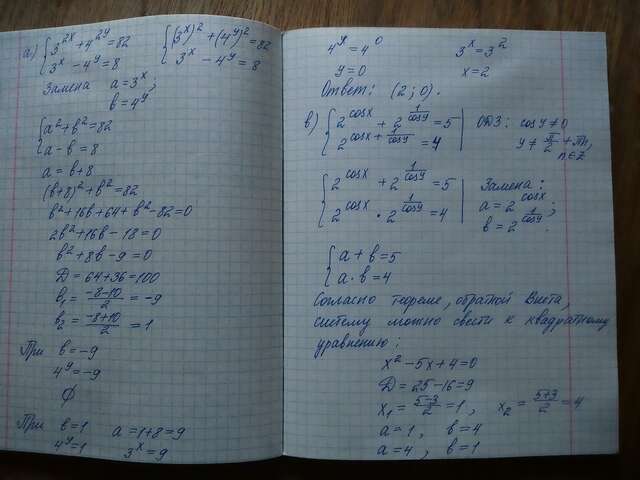 а) { 3^{2x} + 4^{2y} = 82   { (3^x)^2 + (4^y)^2 = 82
{ 3^x - 4^y = 8   { 3^x - 4^y = 8
Замена a = 3^x;
b = 4^y
{ a^2 + b^2 = 82
{ a - b = 8
a = b + 8
(b+8)^2 + b^2 = 82
b^2 + 16b + 64 + b^2 - 82 = 0
2b^2 + 16b - 18 = 0
b^2 + 8b - 9 = 0
D = 64 + 36 = 100
b_1 = (-8-10)/2 = -9
b_2 = (-8+10)/2 = 1
При b = -9
4^y = -9
∅
При b = 1   a = 1 + 8 = 9
4^y = 1   3^x = 9
4^y = 4^0   3^x = 3^2
y = 0   x = 2
Ответ: (2; 0).
в) { 2^{cosx} + 2^{1/cosy} = 5 | ОДЗ: cosy ≠ 0
{ 2^{cosx + 1/cosy} = 4 | y ≠ π/2 + πn,
n ∈ Z
{ 2^{cosx} + 2^{1/cosy} = 5 | Замена:
{ 2^{cosx} · 2^{1/cosy} = 4 | a = 2^{cosx};
b = 2^{1/cosy}.
{ a + b = 5
{ a · b = 4
Согласно теореме, обратной Виета,
систему можно свести к квадратному
уравнению:
x^2 - 5x + 4 = 0
D = 25 - 16 = 9
x_1 = (5-3)/2 = 1,   x_2 = (5+3)/2 = 4
a = 1,   b = 4
a = 4,   b = 1